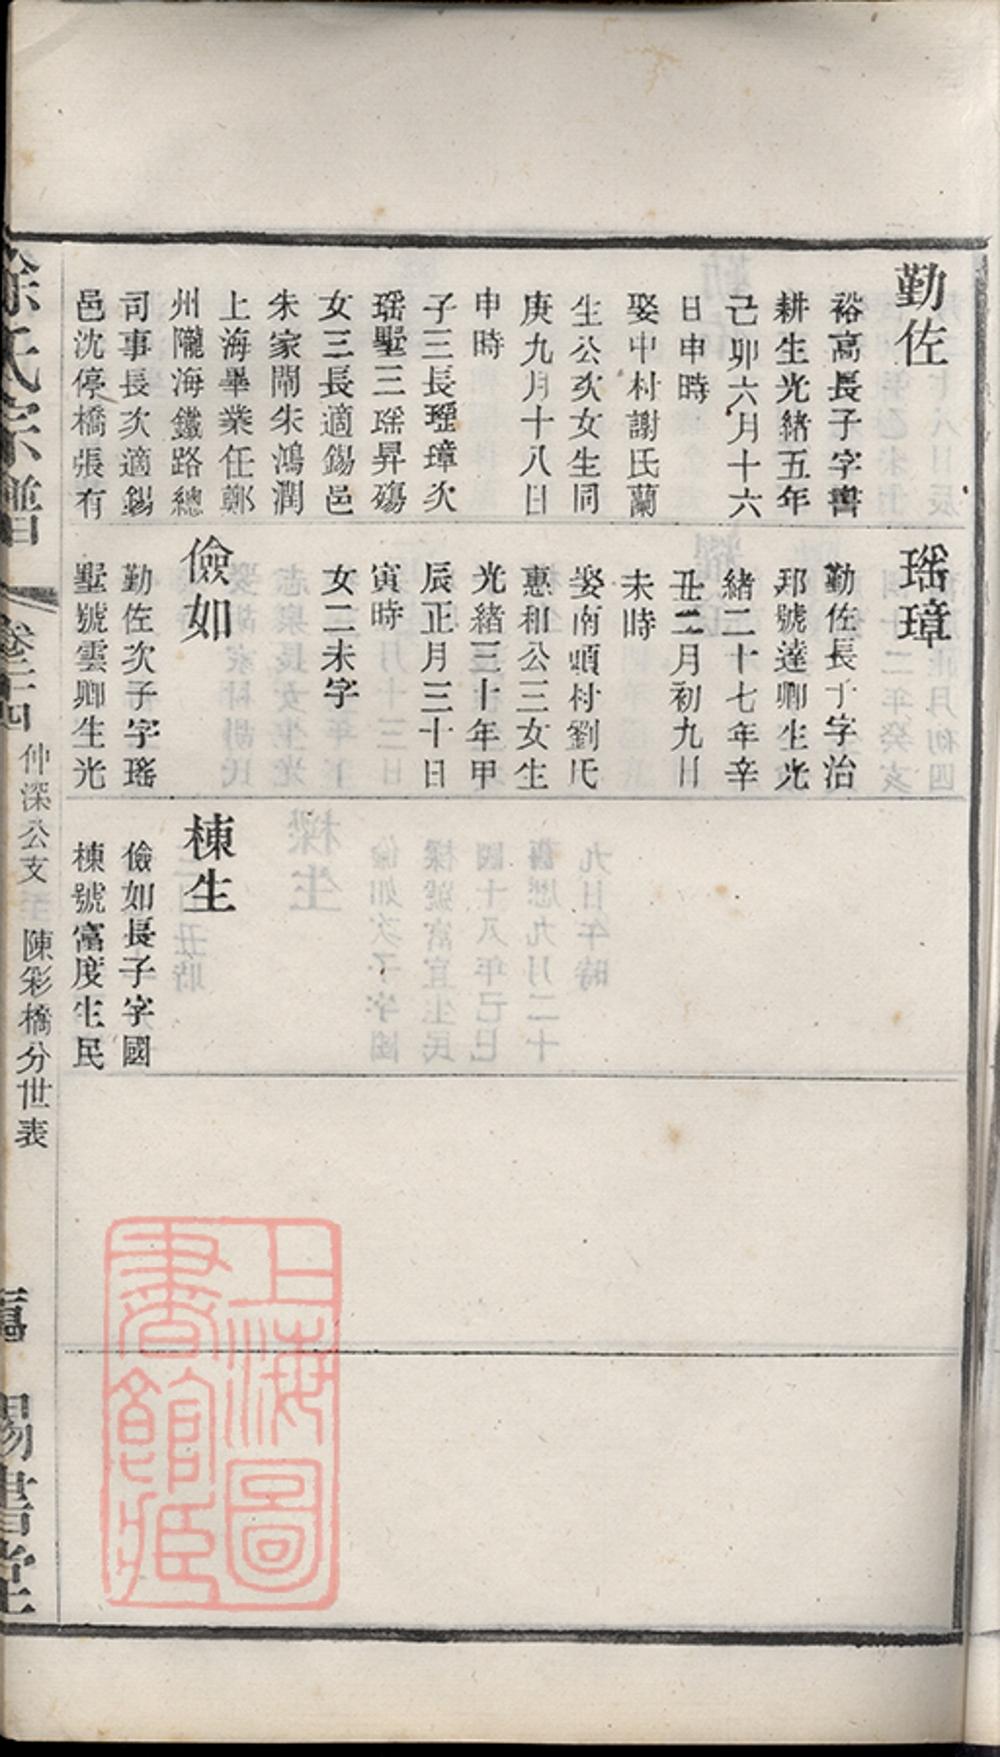 勤佐
裕高長子字書
耕生光緒五年
己卯六月十六
日申時
娶中村謝氏蘭
生公次女生同
庚九月十八日
申時
子三長瑶璋次
瑶墅三瑶昇殤
女三長適錫邑
朱家鬧朱鴻潤
上海畢業任鄭
州隴海鐵路總
司事長次適錫
邑沈停橋張有
瑶璋
勤佐長子字治
邦號達卿生光
緒二十七年辛
丑二月初九日
未時
娶南頭村劉氏
惠和公三女生
光緒三十年甲
辰正月三十日
寅時
女二未字
儉如
勤佐次子字瑤
墅號雲卿生光
棟生
儉如長子字國
棟號富度生民
徐氏宗譜
卷二十四
仲深公支 陳彩橋分世表
賜書堂
上海圖
書館藏